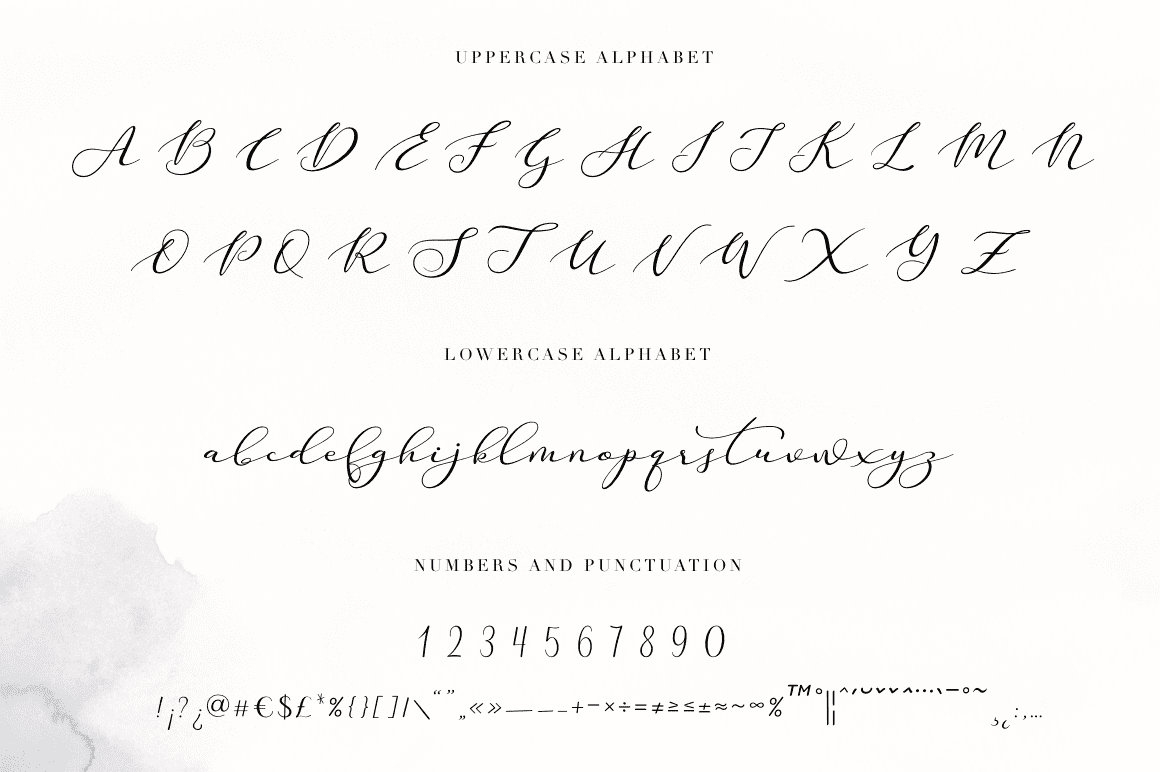 UPPERCASE ALPHABET
A B C D E F G H I J K L M N
O P Q R S T U V W X Y Z
LOWERCASE ALPHABET
abcdefghijklmnopqrstuvwxyz
NUMBERS AND PUNCTUATION
1 2 3 4 5 6 7 8 9 0
!¡?¿@#€$£*%{}[]/\“”„«»—–-+−×÷=≠≥≤±≈~∞%™°¦
:,...